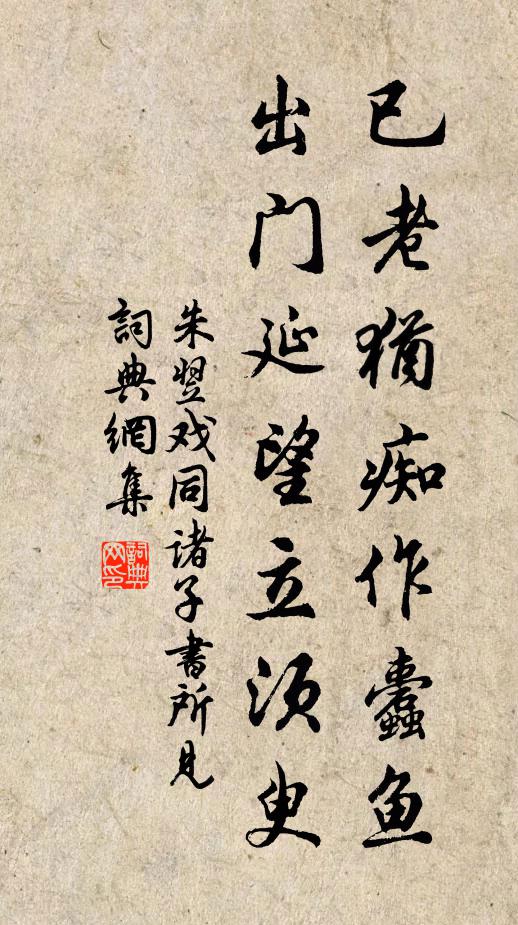 已老猶痴作蠹鱼
出门延望立须叟
朱翌戏同诸子書所見
詞典網集
詞典网印